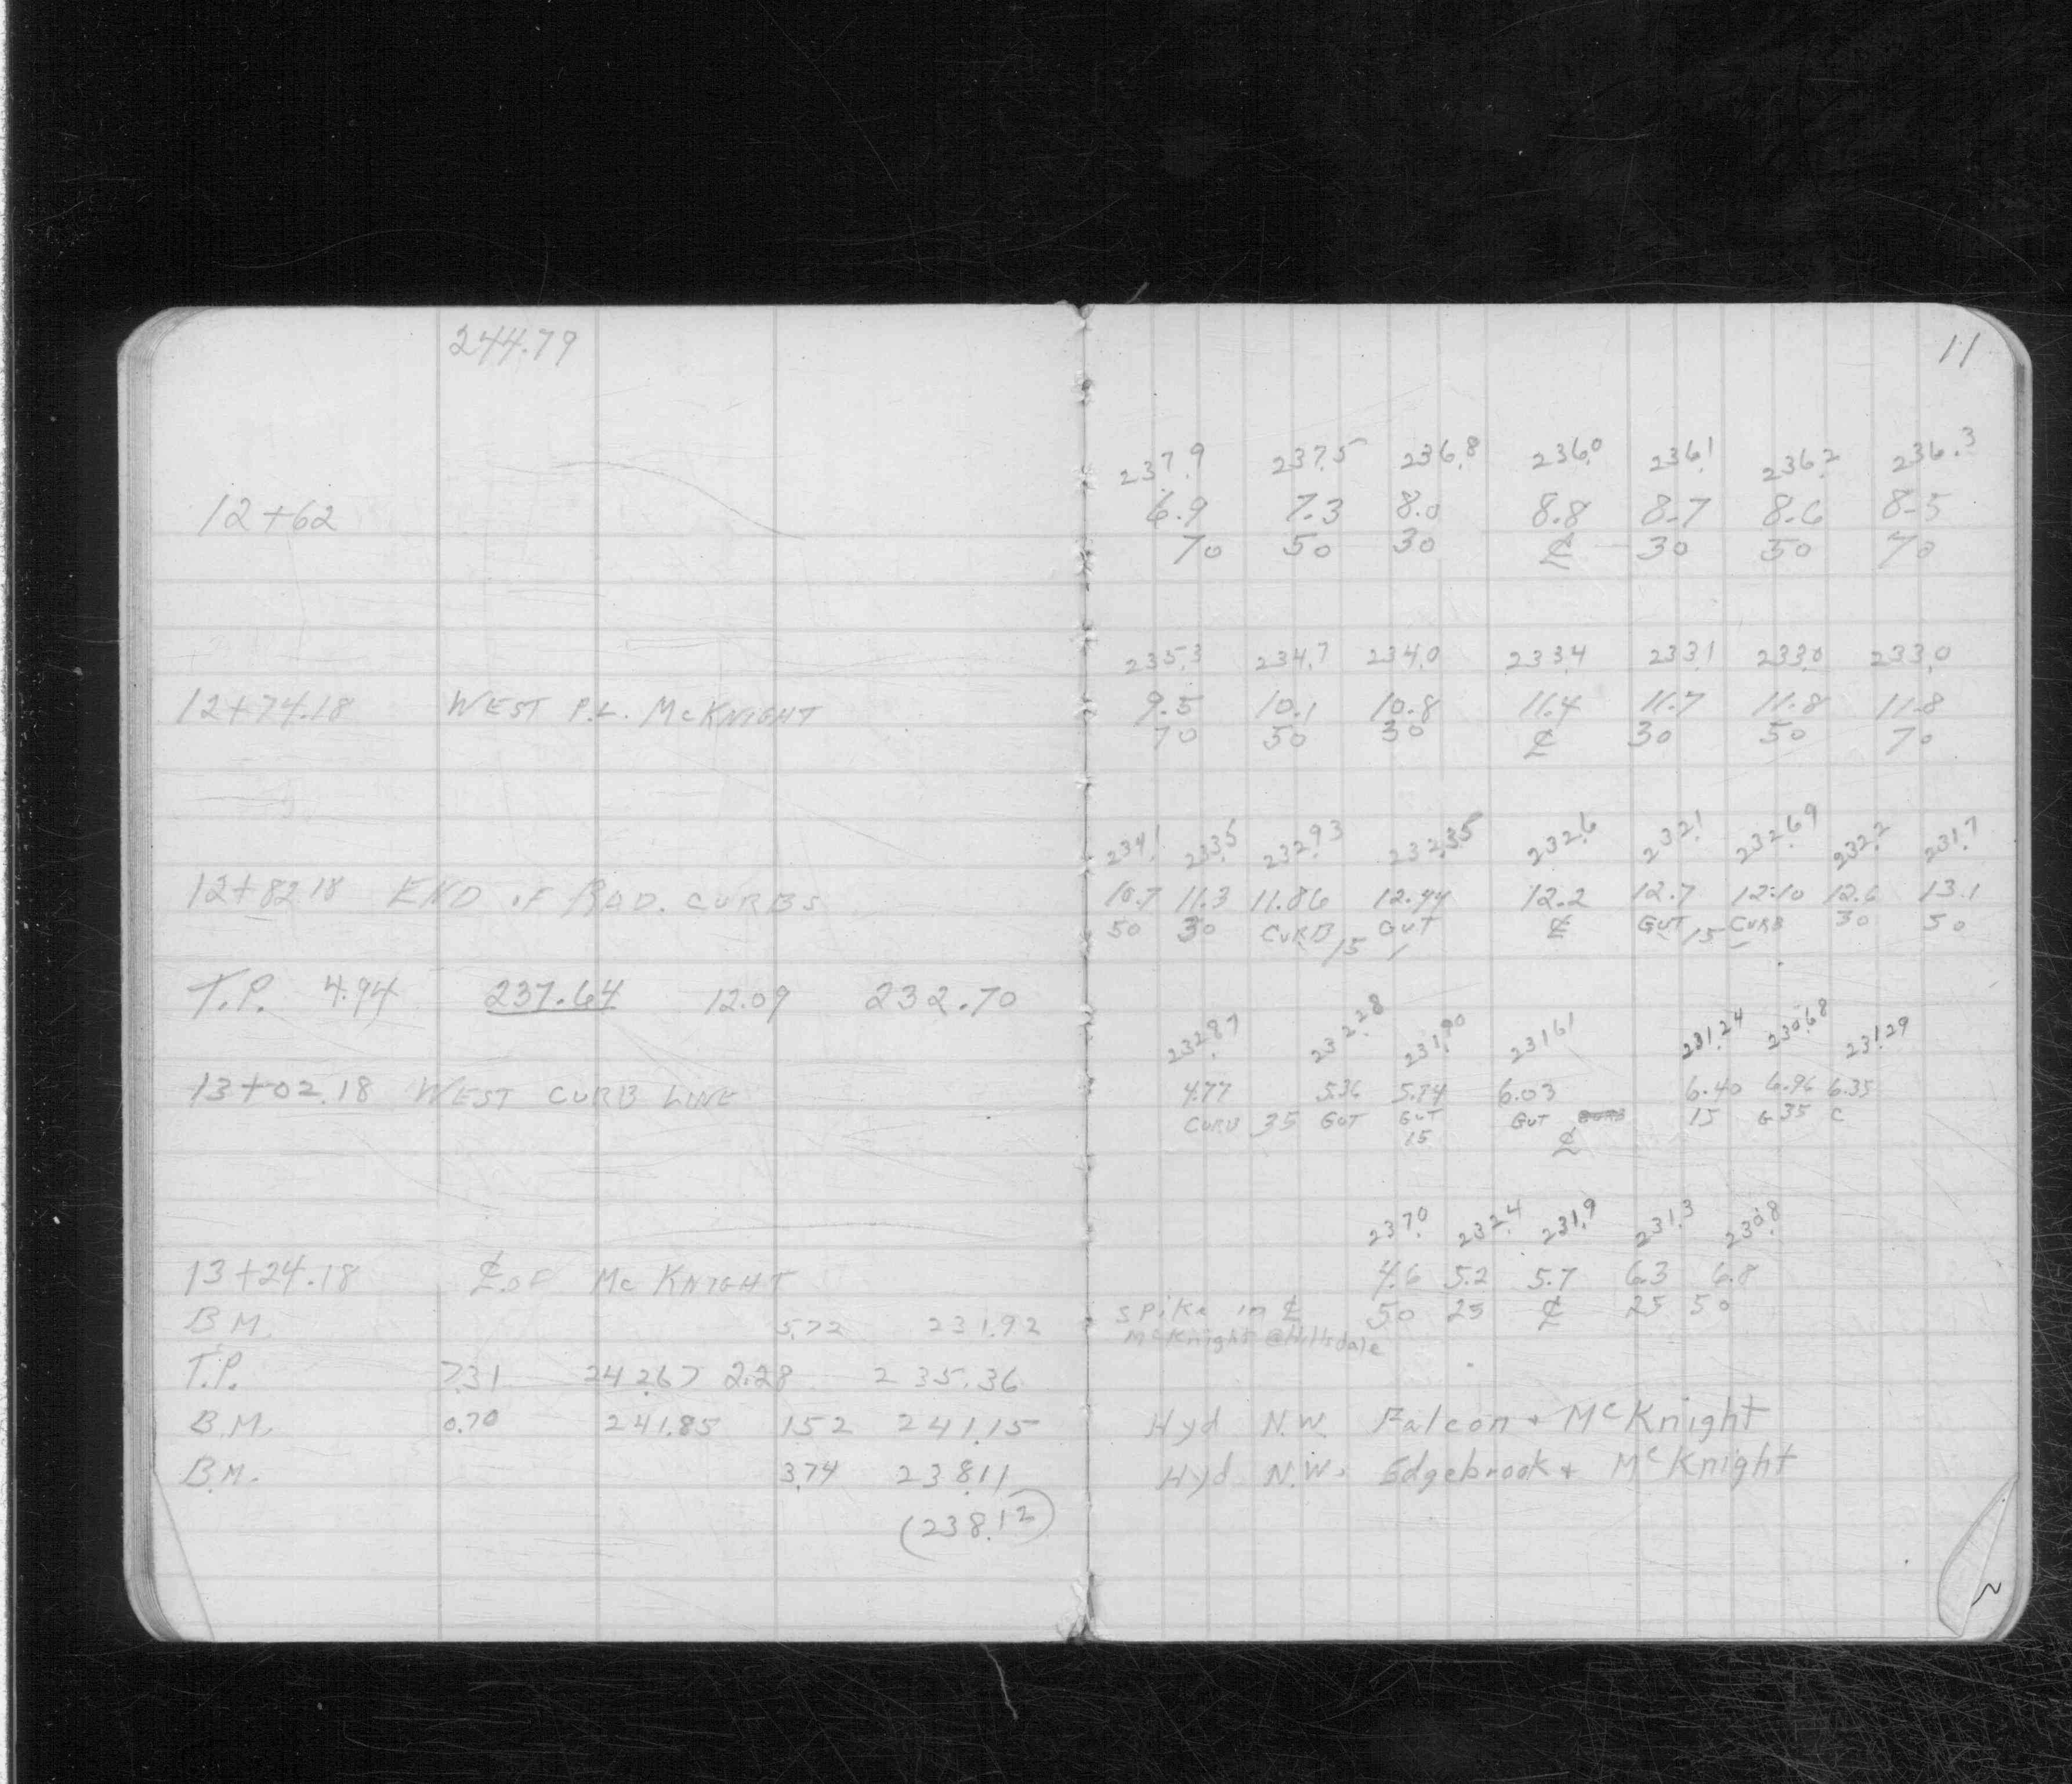 244.79
11
237.9 237.5 236.8 236.0 236.1 236.2 236.3
12+62 6.9 7.3 8.0 8.8 8.7 8.6 8.5
70 50 30 ℄ 30 50 70
235.3 234.7 234.0 233.4 233.1 233.0 233.0
12+74.18 WEST P.L. McKNIGHT 9.5 10.1 10.8 11.4 11.7 11.8 11.8
70 50 30 ℄ 30 50 70
234.1 233.5 232.93 232.35 232.6 232.1 232.69 232.2 231.7
12+82.18 END OF RAD. CURBS 10.7 11.3 11.86 12.44 12.2 12.7 12.10 12.6 13.1
50 30 CURB 15 GUT ℄ GUT 15 CURB 30 50
T.P. 4.94 237.64 12.09 232.70
232.87 232.28 231.90 231.61 231.24 230.68 231.29
13+02.18 WEST CURB LINE 4.77 5.36 5.74 6.03 6.40 6.96 6.35
CURB 35 GUT GUT GUT 15 G 35 C
15 ℄
237.0 232.4 231.9 231.3 230.8
13+24.18 ℄ OF McKNIGHT 4.6 5.2 5.7 6.3 6.8
50 25 ℄ 25 50
B.M. 5.72 231.92 Spike in ℄
McKnight @ Hillsdale
T.P. 7.31 242.67 2.28 235.36
B.M. 0.70 241.85 1.52 241.15 Hyd N.W. Falcon + McKnight
B.M. 3.74 238.11 Hyd N.W. Edgebrook + McKnight
(238.12)